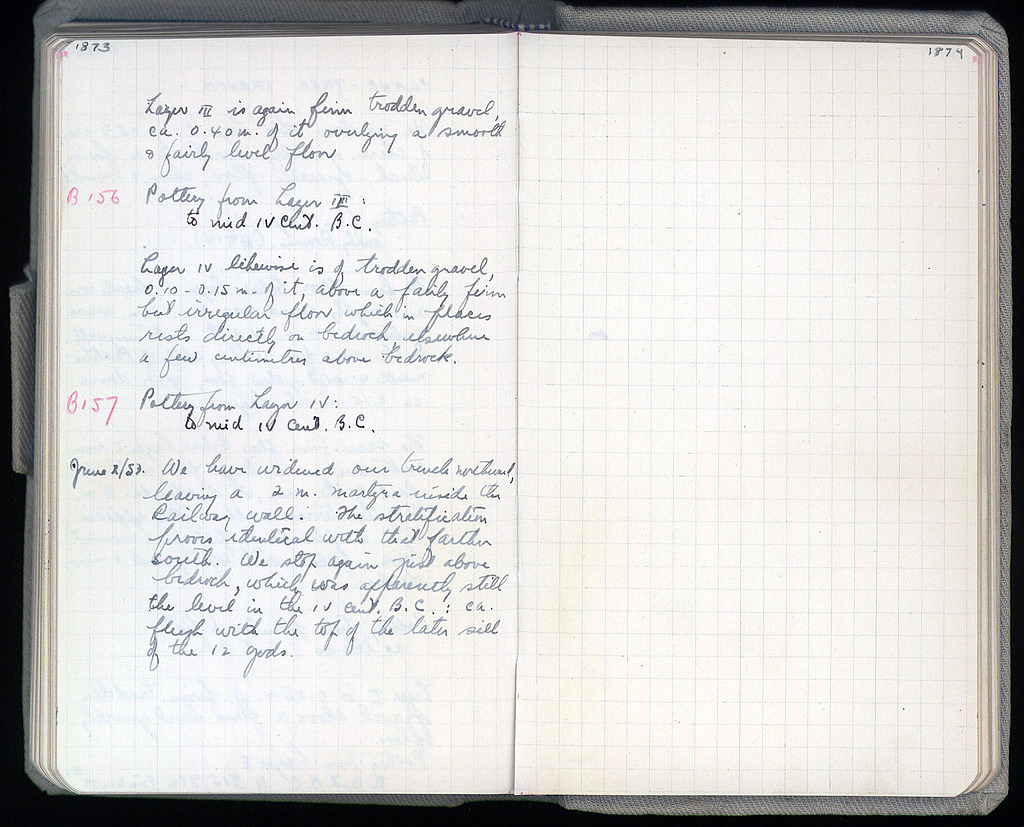 1873
1874
Layer III is again firm trodden gravel,
ca. 0.40 m. of it overlying a smooth
& fairly level floor
B 156 Pottery from Layer III:
to mid IV cent. B.C.
Layer IV likewise is of trodden gravel,
0.10 - 0.15 m. of it, above a fairly firm
but irregular floor which in places
rests directly on bedrock, elsewhere
a few centimetres above bedrock.
B 157 Pottery from Layer IV:
to mid IV cent. B.C.
June 2/53. We have widened our trench northward,
leaving a 2 m. martyra inside the
Railway wall. The stratification
proves identical with that farther
south. We stop again just above
bedrock, which was apparently still
the level in the IV cent. B.C.: ca.
flush with the top of the later sill
of the 12 gods.